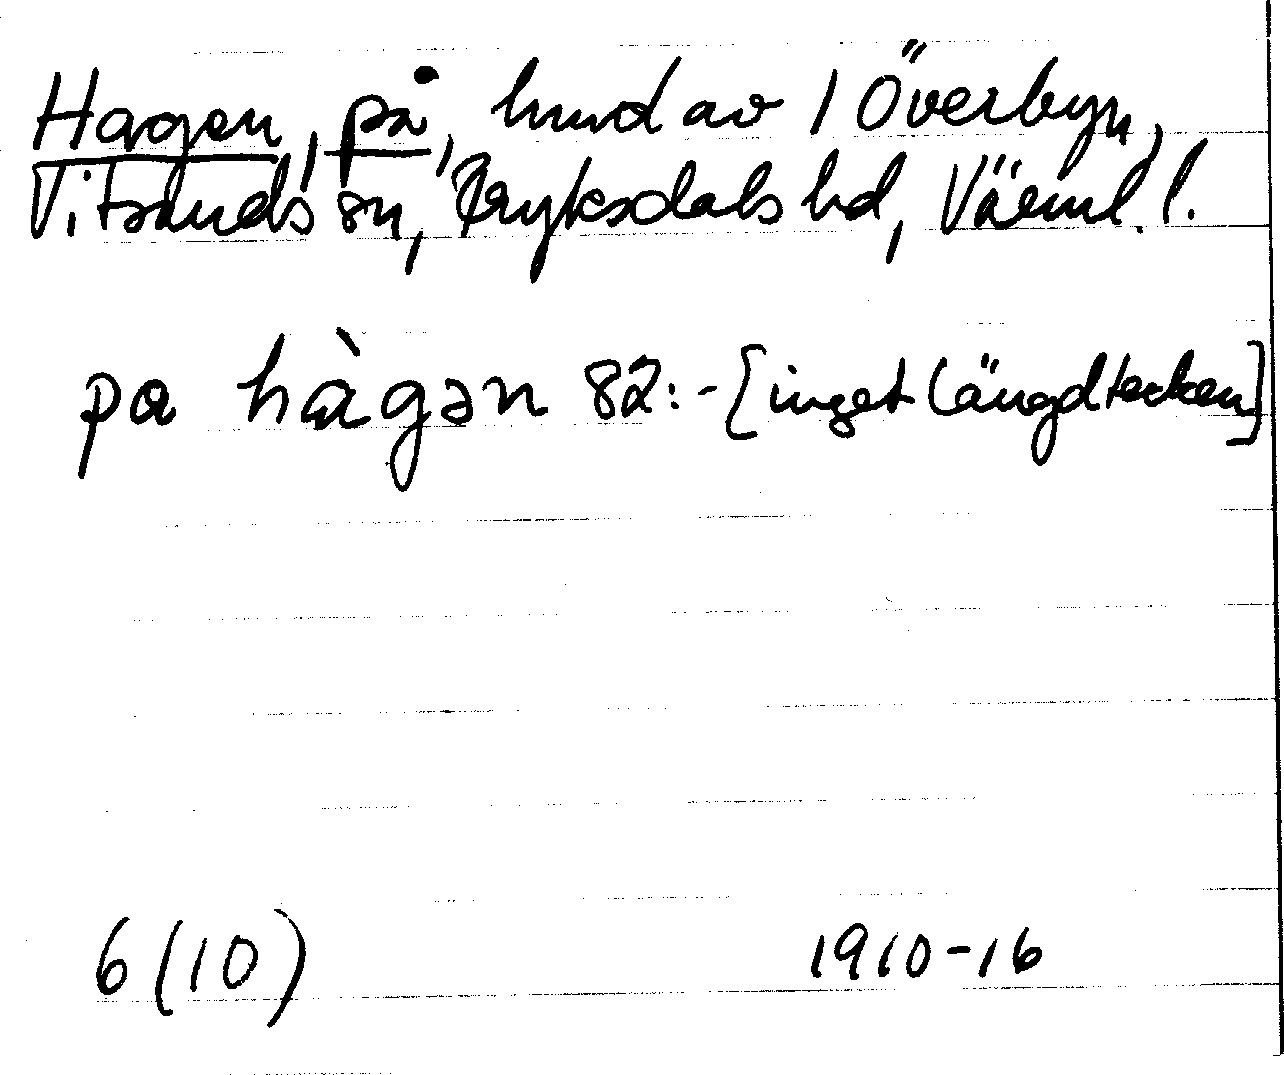 Hagen, på, hmd av 1 Överbyn,
Vitsands sn, Fryksdals hd, Värml. l.
pa hàgən 82:- [inget längdtecken]
6 (10) 1910-16